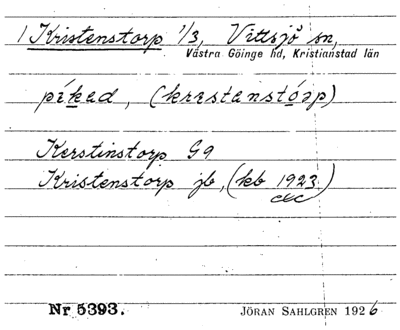 1 Kristenstorp 1/3, Vittsjö sn,
Västra Göinge hd, Kristianstad län
píkad, (krɪstanstóəp)
Kerstinstorp G9
Kristenstorp jb, (kb 1923)
Nr 5393. JÖRAN SAHLGREN 1926